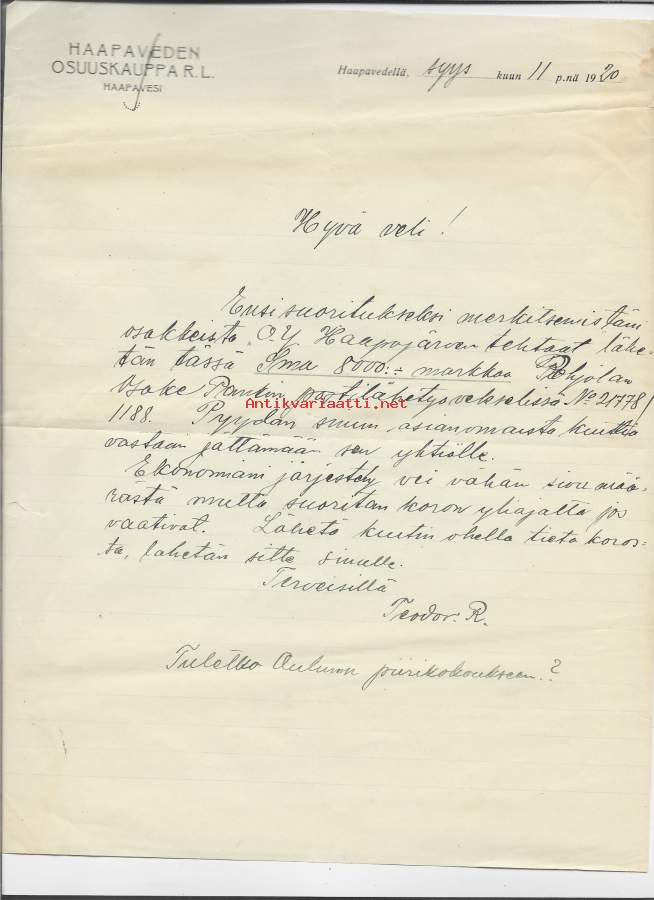 HAAPAVEDEN
OSUUSKAUPPA R.L.
HAAPAVESI
Haapavedellä, syys kuun 11 p.nä 1920
Hyvä veli!
Ensi suoritukseksi merkitsemistäni
osakkeista O.Y. Haapajärven tehtaat lähe-
tän tässä Sma 8000:- markkaa Pohjolan
Osake Pankin postilähetysvekselissä No 21778/
Antikvariaatti.net
1188. Pyydän sinun asianomaista kuittia
vastaan jättämään sen yhtiölle.
Ekonomiani järjestely vei vähän sivu mää-
rästä mutta suoritan koron yliajalta jos
vaativat. Lähetä kuitin ohella tieto koros-
ta, lähetän sitte sinulle.
Terveisillä
Teodor. R.
Tuletko Ouluun piirikokoukseen.?